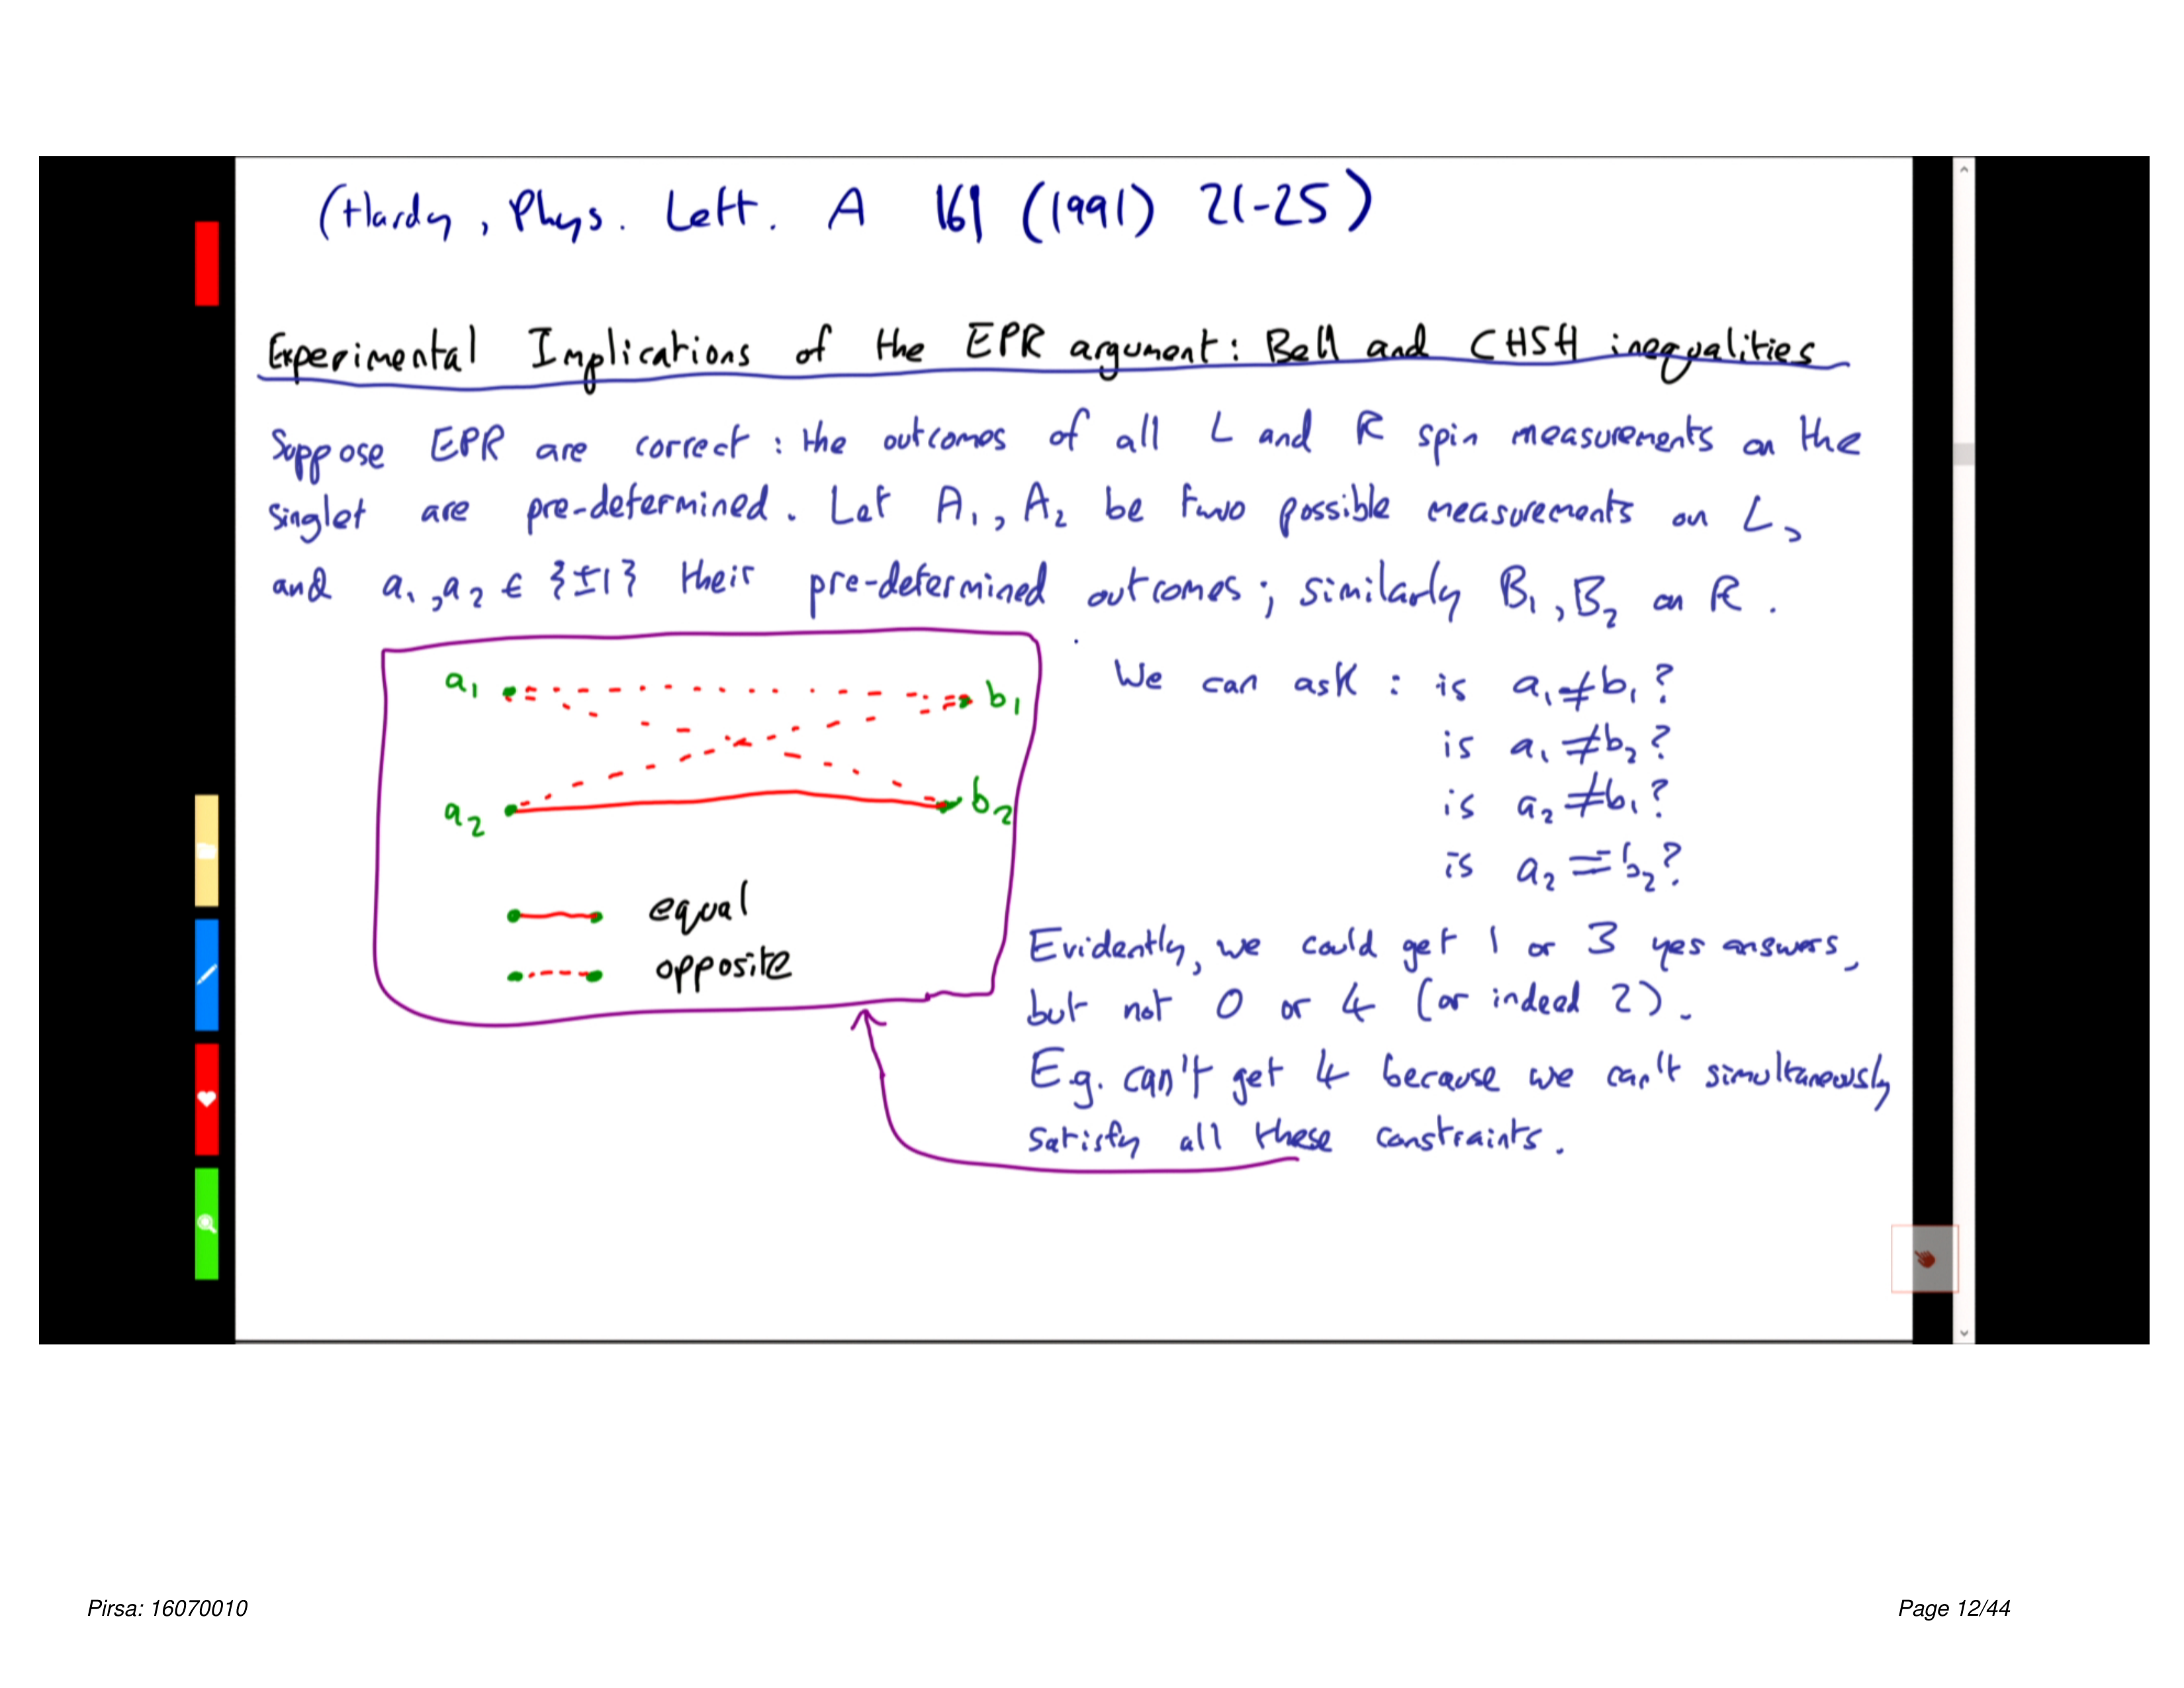 (Hardy, Phys. Lett. A 161 (1991) 21-25)
Experimental Implications of the EPR argument: Bell and CHSH inequalities
Suppose EPR are correct: the outcomes of all L and R spin measurements on the
singlet are pre-determined. Let A₁, A₂ be two possible measurements on L,
and a₁, a₂ ∈ {±1} their pre-determined outcomes; similarly B₁, B₂ on R.
a₁ b₁
a₂ b₂
equal
opposite
We can ask: is a₁≠b₁?
is a₁≠b₂?
is a₂≠b₁?
is a₂=b₂?
Evidently, we could get 1 or 3 yes answers,
but not 0 or 4 (or indeed 2).
E.g. can't get 4 because we can't simultaneously
satisfy all these constraints.
Pirsa: 16070010
Page 12/44